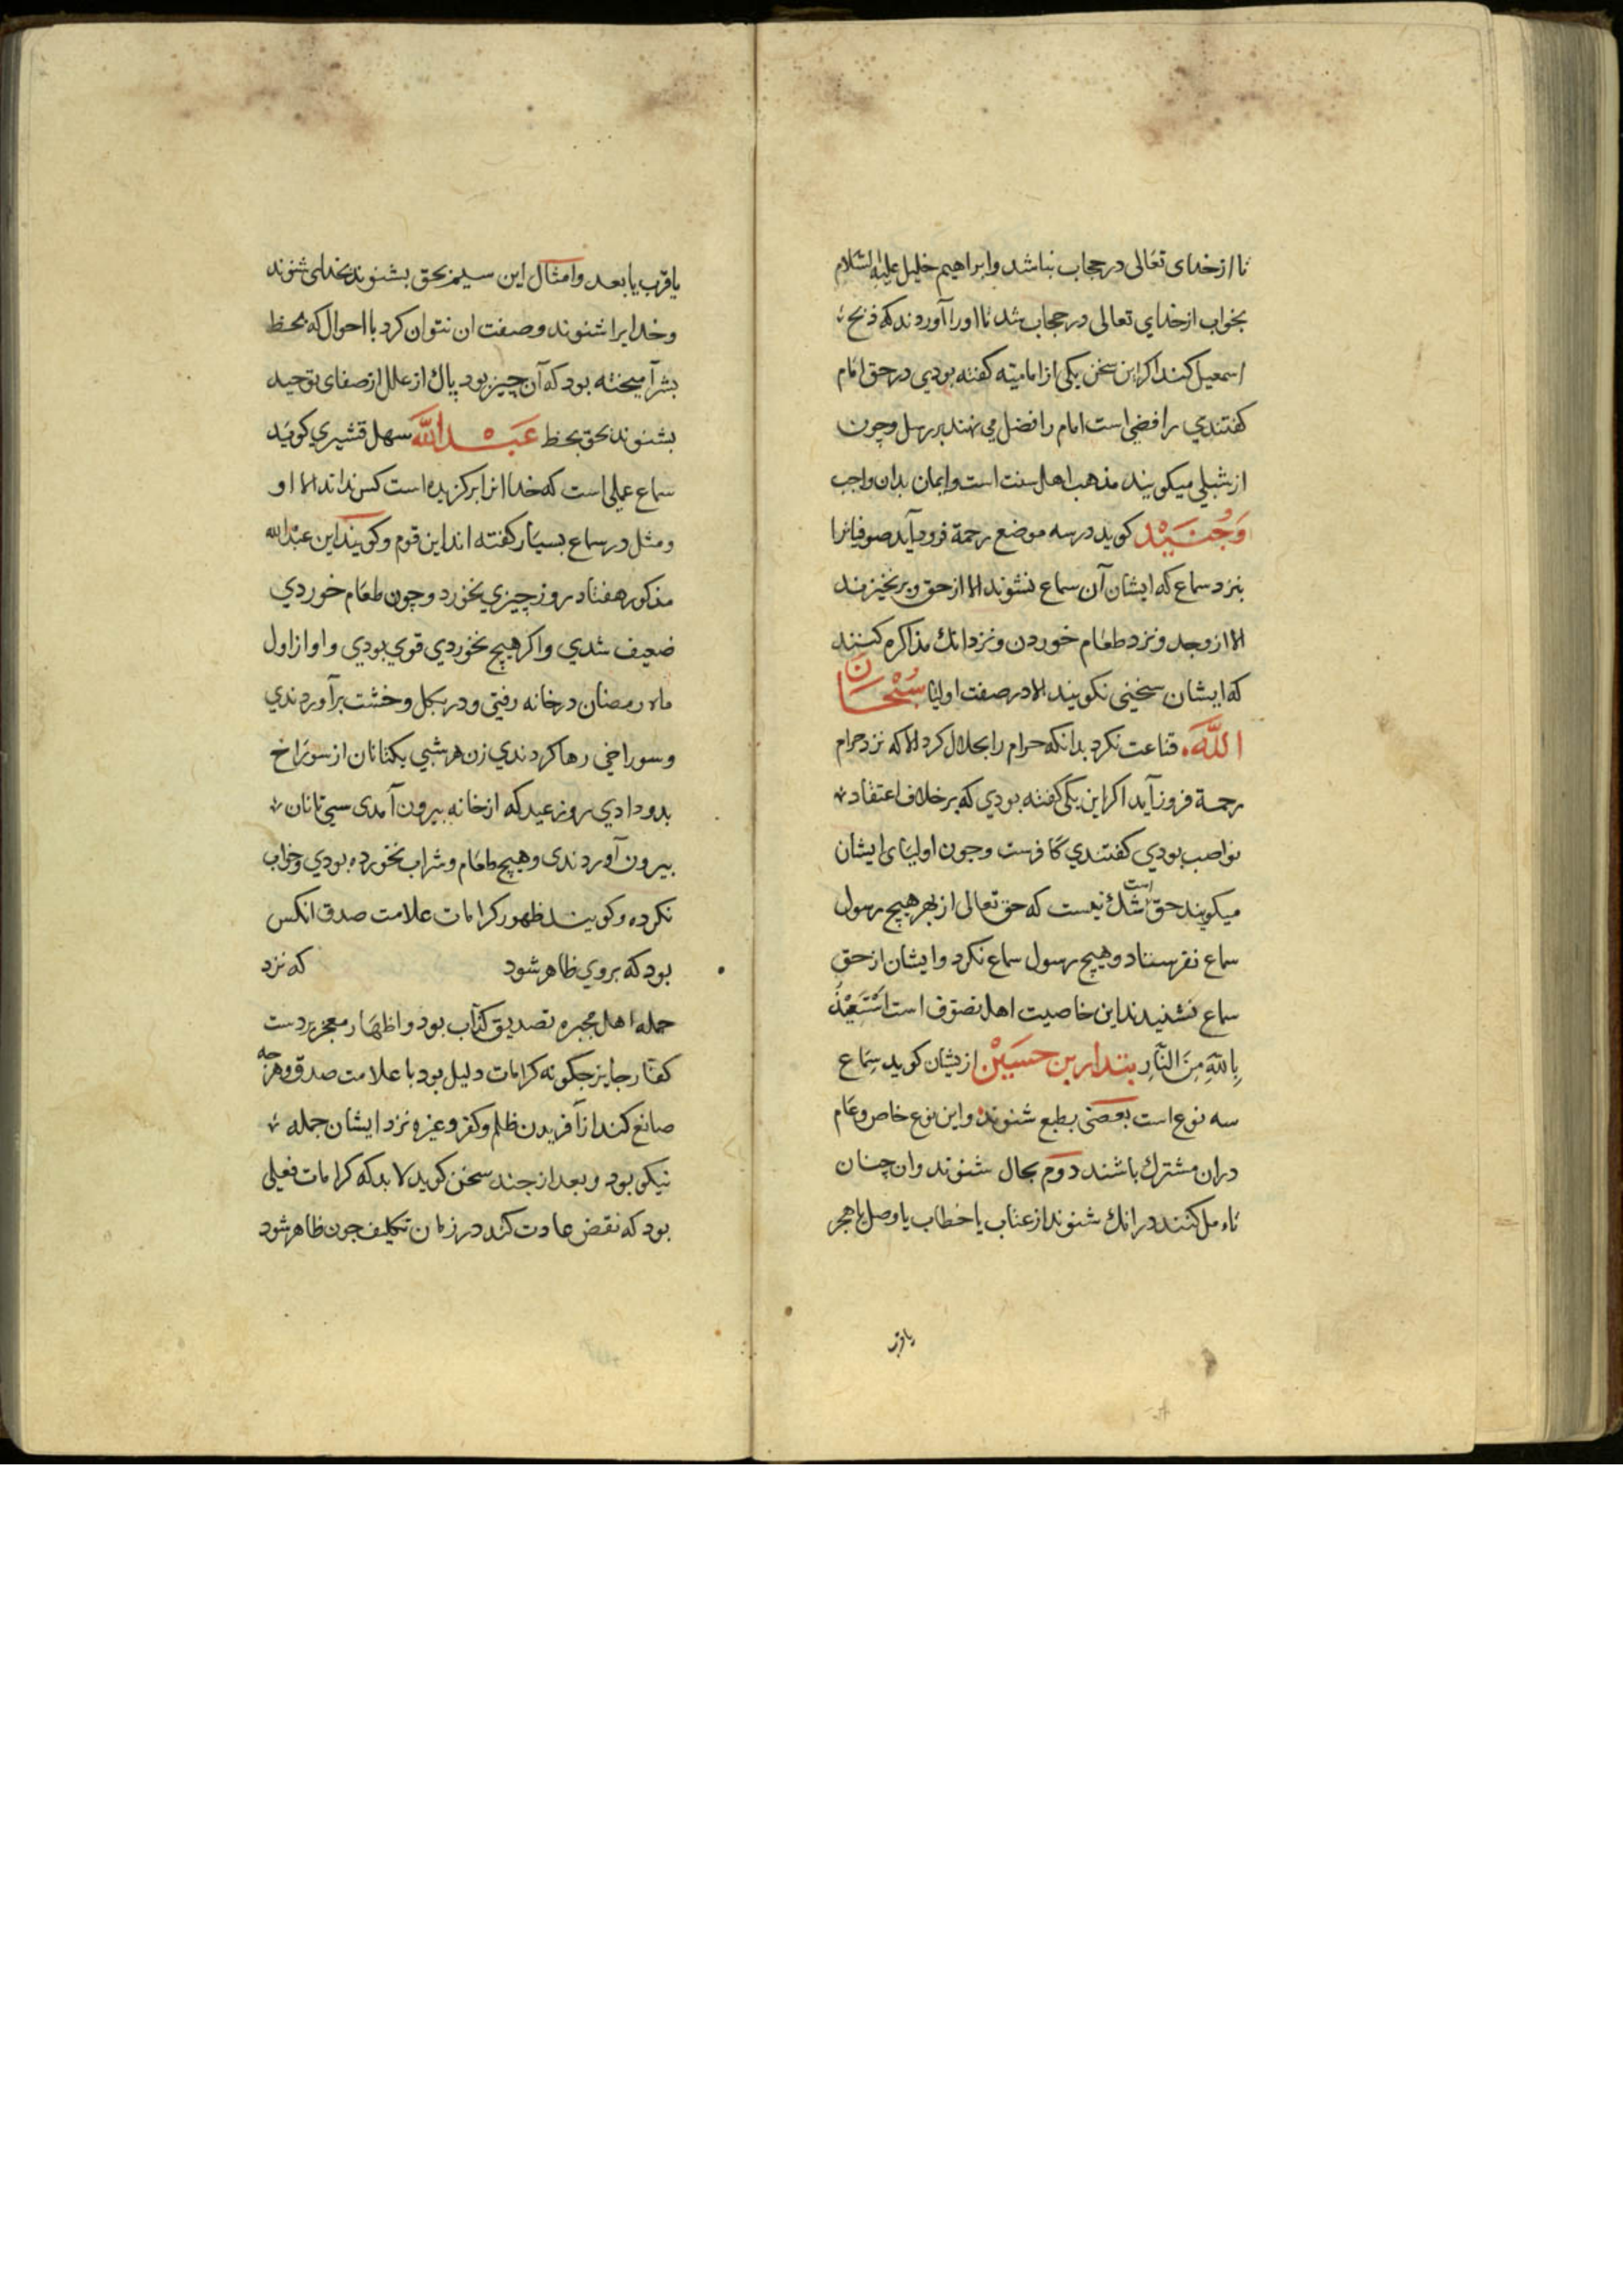 تا از خدای تعالی در حجاب نباشد و ابراهیم خلیل علیه السلام
بخواب از خدای تعالی در حجاب شد تا اورا آوردند که ذبح
اسمعیل کند اکر این سخن یکی از امامیته کفته بودي در حق امام
کفتندي رافضی است امام را فضل می نهند بر رسل و چون
از شبلی میکویند مذهب اهل سنت است و ایمان بدان واجب
وَجُنَیْد کوید در سه موضع رحمة فرود آید صوفیانرا
بنزد سماع که ایشان آن سماع نشنوند الا از حق و برنخیزند
الا از وجد و نزد طعام خوردن و نزد آنك مذاکره کنند
که ایشان سخنی نکویند الا در صفت اولیا سُبْحَانَ
اللَّه قناعت نکرد بدانکه حرام را بحلال کرد الا که نزد حرام
رحمة فروز آید اکر این یکی کفته بودي که بر خلاف اعتقاد
نواصب بودي کفتندي کافرست و چون اولیای ایشان
میکویند حق است شك نیست که حق تعالی از بهر هیچ رسول
سماع نفرستاد و هیچ رسول سماع نکرد و ایشان از حق
سماع نشنیدند این خاصیت اهل تصوف است اَسْتَعِیْذُ
بِاللّهِ مِنَ النَّارِ بندار بن حسَیْن ازیشان کوید سماع
سه نوع است بعضی بطبع شنوند و این نوع خاص و عام
دران مشترك باشند دوم بحال شنوند و ان چنان
تاء مل کنند در انك شنوند از عتاب یا خطاب یا وصل یا هجر
یا قرب
یا قرب یا بعد و امثال این سیم بحق بشنوند بخدای شنوند
و خدایرا شنوند و صفت ان نتوان کرد با احوال که بحظ
بشر آمیخته بود که آن چیز بود پاك از علل از صفای توحید
بشنوند بحق بحظ عَبْد اللّه سهل قشیري کوید
سماع عملی است که خدا انرا برکزیده است کس نداند الا او
و مثل در سماع بسیار کفته اند این قوم و کویند این عبد الله
مذکور هفتاد روز چیزي نخورد و چون طعام خوردي
ضعیف شدي و اکر هیچ نخوردي قوي بودي و او از اول
ماه رمضان در خانه رفتی و در بکل و خشت برآوردندي
و سوراخی رها کردندي زن هر شبي یکتا نان از سوراخ
بدو دادي روز عید که از خانه بیرون آمدی سی تا نان
بیرون آوردندی و هیچ طعام و شراب نخورده بودي و خواب
نکرده و کویند ظهور کرامات علامت صدق انکس
بود که بروي ظاهر شود که نزد
جمله اهل مجبره تصدیق کذاب بود و اظهار معجز بر دست
کفار جایز چکونه کرامات دلیل بود با علامت صدق و هرچه
صانع کند از آفریدن ظلم و کفر و غیره نزد ایشان جمله
نیکو بود و بعد از چند سخن کوید لا بد که کرامات فعلی
بود که نقض عادت کند در زمان تکلیف چون ظاهر شود